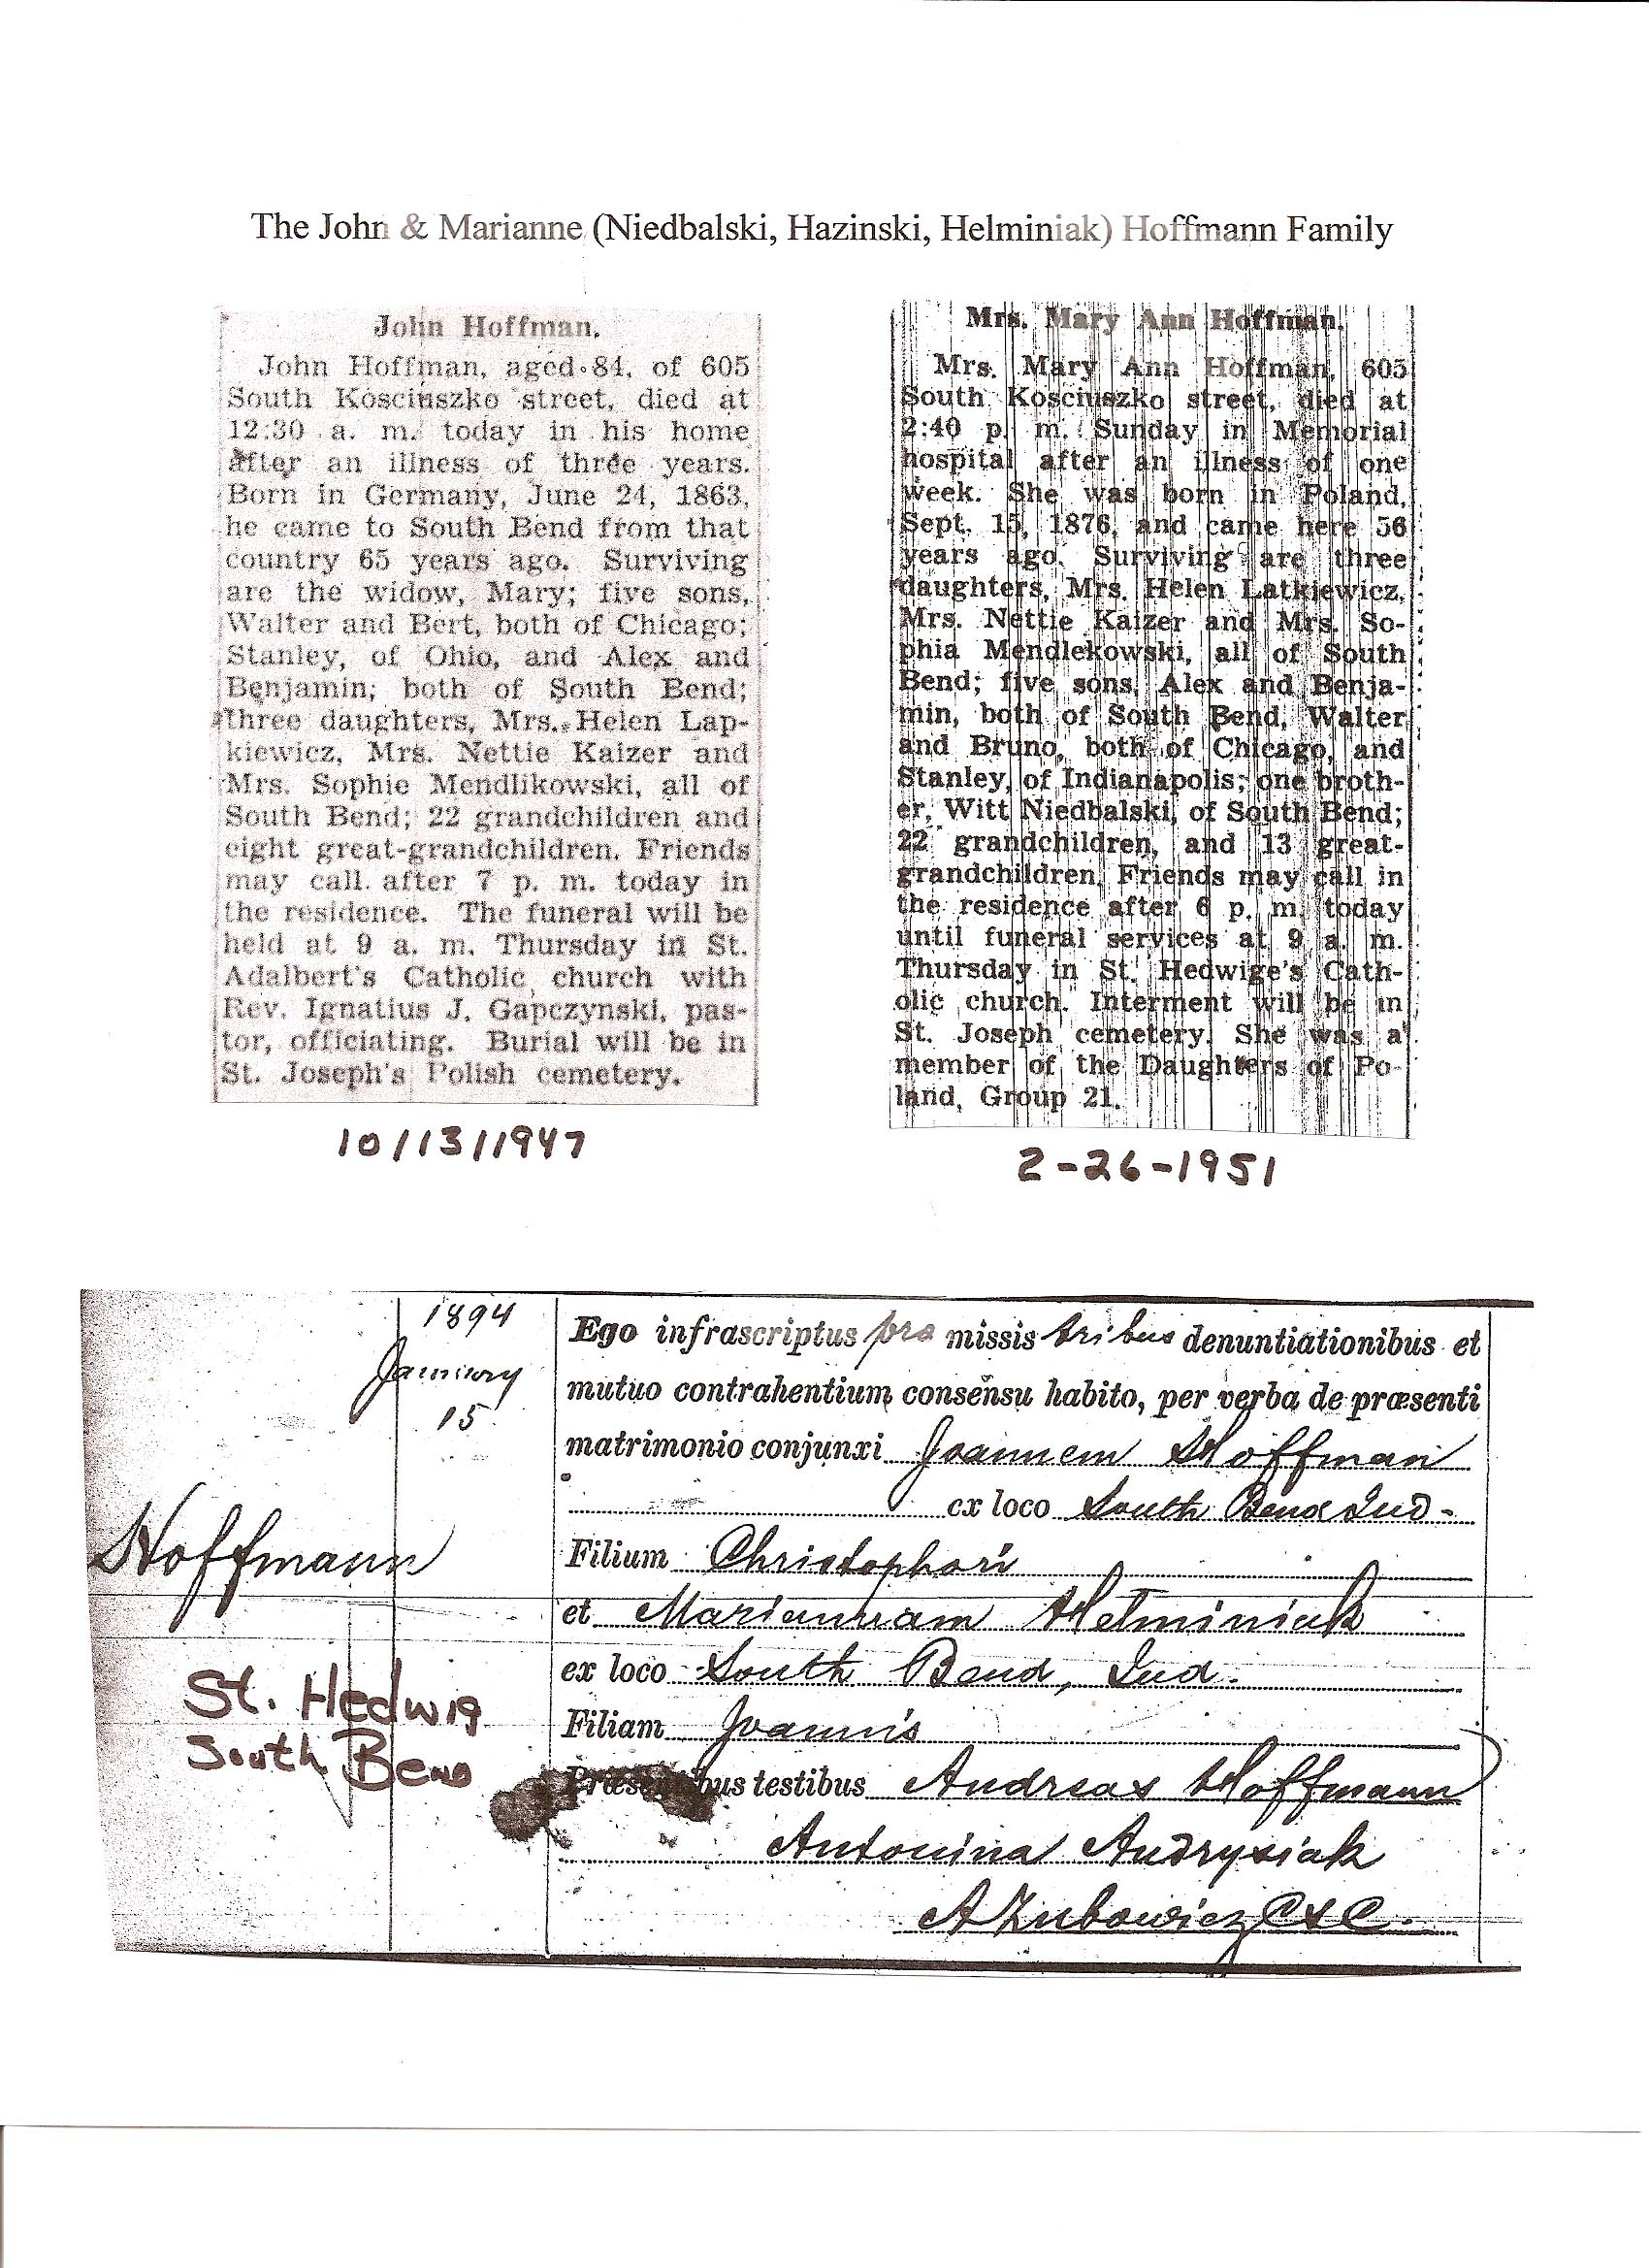 The John & Marianne (Niedbalski, Hazinski, Helminiak) Hoffmann Family
John Hoffman.
John Hoffman, aged 84, of 605
South Kosciuszko street, died at
12:30 a. m. today in his home
after an illness of three years.
Born in Germany, June 24, 1863,
he came to South Bend from that
country 65 years ago. Surviving
are the widow, Mary; five sons,
Walter and Bert, both of Chicago;
Stanley, of Ohio, and Alex and
Benjamin; both of South Bend;
three daughters, Mrs. Helen Lap-
kiewicz, Mrs. Nettie Kaizer and
Mrs. Sophie Mendlikowski, all of
South Bend; 22 grandchildren and
eight great-grandchildren. Friends
may call after 7 p. m. today in
the residence. The funeral will be
held at 9 a. m. Thursday in St.
Adalbert's Catholic church with
Rev. Ignatius J. Gapczynski, pas-
tor, officiating. Burial will be in
St. Joseph's Polish cemetery.
10/13/1947
Mrs. Mary Ann Hoffman.
Mrs. Mary Ann Hoffman, 605
South Kosciuszko street, died at
2:40 p. m. Sunday in Memorial
hospital after an illness of one
week. She was born in Poland,
Sept. 15, 1876, and came here 56
years ago. Surviving are three
daughters, Mrs. Helen Latkiewicz,
Mrs. Nettie Kaizer and Mrs. So-
phia Mendlekowski, all of South
Bend; five sons, Alex and Benja-
min, both of South Bend, Walter
and Bruno, both of Chicago, and
Stanley, of Indianapolis; one broth-
er, Witt Niedbalski, of South Bend;
22 grandchildren, and 13 great-
grandchildren. Friends may call in
the residence after 6 p. m. today
until funeral services at 9 a. m.
Thursday in St. Hedwige's Cath-
olic church. Interment will be in
St. Joseph cemetery. She was a
member of the Daughters of Po-
land, Group 21.
2-26-1951
1894
January
15
Hoffmann
St. Hedwig
South Bend
Ego infrascriptus præ missis tribus denuntiationibus et
mutuo contrahentium consensu habito, per verba de præsenti
matrimonio conjunxi Joannem Hoffman
ex loco South Bend Ind-
Filium Christophori
et Mariannam Helminiak
ex loco South Bend, Ind.
Filiam Joannis
Præsentibus testibus Andreas Hoffmann
Antonina Andrysiak
A Zubowicz CSC.